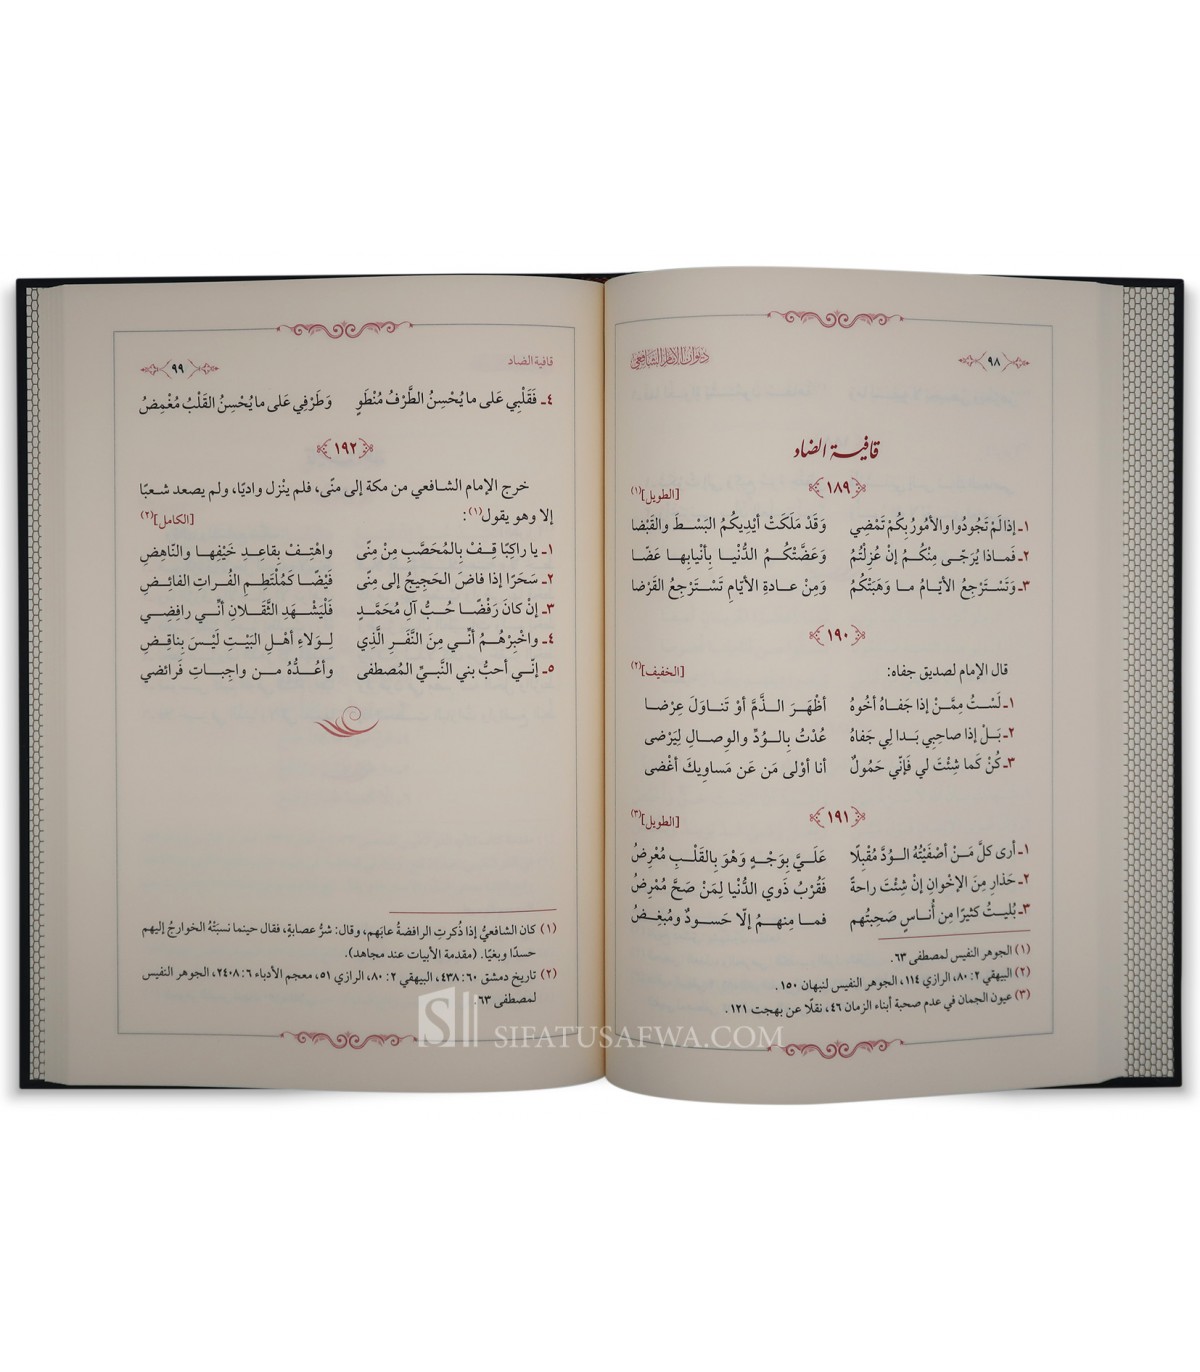 ديوان الإمام الشافعي
٩٨
قافية الضاد
١٨٩
[الطويل](١)
١ـ إذا لَمْ تَجُودُوا والأمُورُ بِكُمْ تَمْضِي وَقَدْ مَلَكَتْ أيْدِيكُمُ البَسْطَ والقَبْضا
٢ـ فَماذا يُرَجّى مِنْكُمُ إنْ عُزِلْتُمُ وَعَضَّتْكُمُ الدُّنْيا بِأنْيابِها عَضّا
٣ـ وَتَسْتَرْجِعُ الأيّامُ ما وَهَبَتْكُمُ وَمِنْ عادةِ الأيّامِ تَسْتَرْجِعُ القَرْضا
١٩٠
قال الإمام لصديق جفاه: [الخفيف](٢)
١ـ لَسْتُ مِمَّنْ إذا جَفاهُ أخُوهُ أظْهَرَ الذَّمَّ أوْ تَناوَلَ عِرْضا
٢ـ بَلْ إذا صاحِبِي بَدا لِي جَفاهُ عُدْتُ بِالوُدِّ والوِصالِ لِيَرْضى
٣ـ كُنْ كَما شِئْتَ لي فَإنّي حَمُولٌ أنا أوْلى مَن عَن مَساوِيكَ أغْضى
١٩١
[الطويل](٣)
١ـ أرى كلَّ مَنْ أصْفَيْتُهُ الوُدَّ مُقْبِلًا عَلَيَّ بِوَجْهٍ وَهْوَ بِالقَلْبِ مُعْرِضُ
٢ـ حَذارِ مِنَ الإخْوانِ إنْ شِئْتَ راحةً فَقُرْبُ ذَوي الدُّنْيا لِمَنْ صَحَّ مُمْرِضُ
٣ـ بُليتُ كثيرًا مِن أُناسٍ صَحِبتُهم فما مِنهمُ إلّا حَسودٌ ومُبغِضُ
(١) الجوهر النفيس لمصطفى ٦٣.
(٢) البيهقي ٢: ٨٠، الرازي ١١٤، الجوهر النفيس لنبهان ١٥٠.
(٣) عيون الجمان في عدم صحبة أبناء الزمان ٤٦، نقلًا عن بهجت ١٢١.
قافية الضاد
٩٩
٤ـ فَقَلْبِي عَلى ما يُحْسِنُ الطَّرْفُ مُنْطَوٍ وَطَرْفِي عَلى ما يُحْسِنُ القَلْبُ مُغْمِضُ
١٩٢
خرج الإمام الشافعي من مكة إلى منًى، فلم ينْزل واديًا، ولم يصعد شعبًا
إلا وهو يقول(١): [الكامل](٢)
١ـ يا راكِبًا قِفْ بِالمُحَصَّبِ مِنْ مِنًى واهْتِفْ بِقاعِدِ خَيْفِها والنّاهِضِ
٢ـ سَحَرًا إذا فاضَ الحَجيجُ إلى مِنًى فَيْضًا كَمُلْتَطِمِ الفُراتِ الفائِضِ
٣ـ إنْ كانَ رَفْضًا حُبُّ آلِ مُحَمَّدٍ فَلْيَشْهَدِ الثَّقَلانِ أنّي رافِضِي
٤ـ واخْبِرْهُمُ أنّي مِنَ النَّفَرِ الَّذِي لِوَلاءِ أهْلِ البَيْتِ لَيْسَ بِناقِضِ
٥ـ إنّي أحبُّ بني النَّبيِّ المُصطفى وأعُدُّهُ من واجِباتِ فَرائضي
(١) كان الشافعيُّ إذا ذُكرتِ الرافضةُ عابَهم، وقال: شرُّ عصابةٍ، فقال حينما نسبَتْهُ الخوارجُ إليهم
حسدًا وبغيًا. (مقدمة الأبيات عند مجاهد).
(٢) تاريخ دمشق ٦٠: ٤٣٨، البيهقي ٢: ٨٠، الرازي ٥١، معجم الأدباء ٦: ٢٤٠٨، الجوهر النفيس
لمصطفى ٦٣.
SIFATUSAFWA.COM